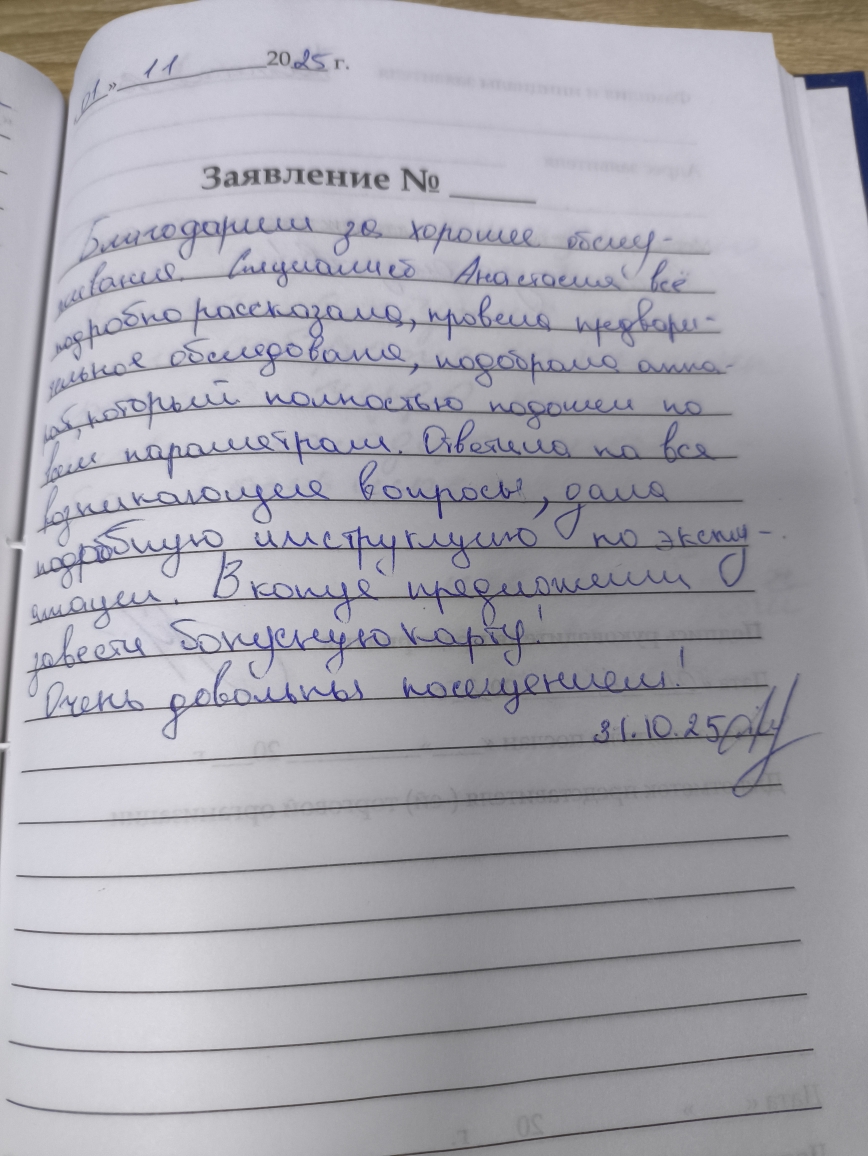 01 » 11 2025 г.
Заявление № ____
Благодарим за хорошее обслу-
живание. Специалист Анастасия всё
подробно рассказала, провела предвари-
тельное обследование, подобрала аппа-
рат, который полностью подошел по
всем параметрам. Ответила на все
возникающие вопросы, дала
подробную инструкцию по эксплу-
атации. В конце предложили
завести бонусную карту!
Очень довольны посещением!
31.10.25